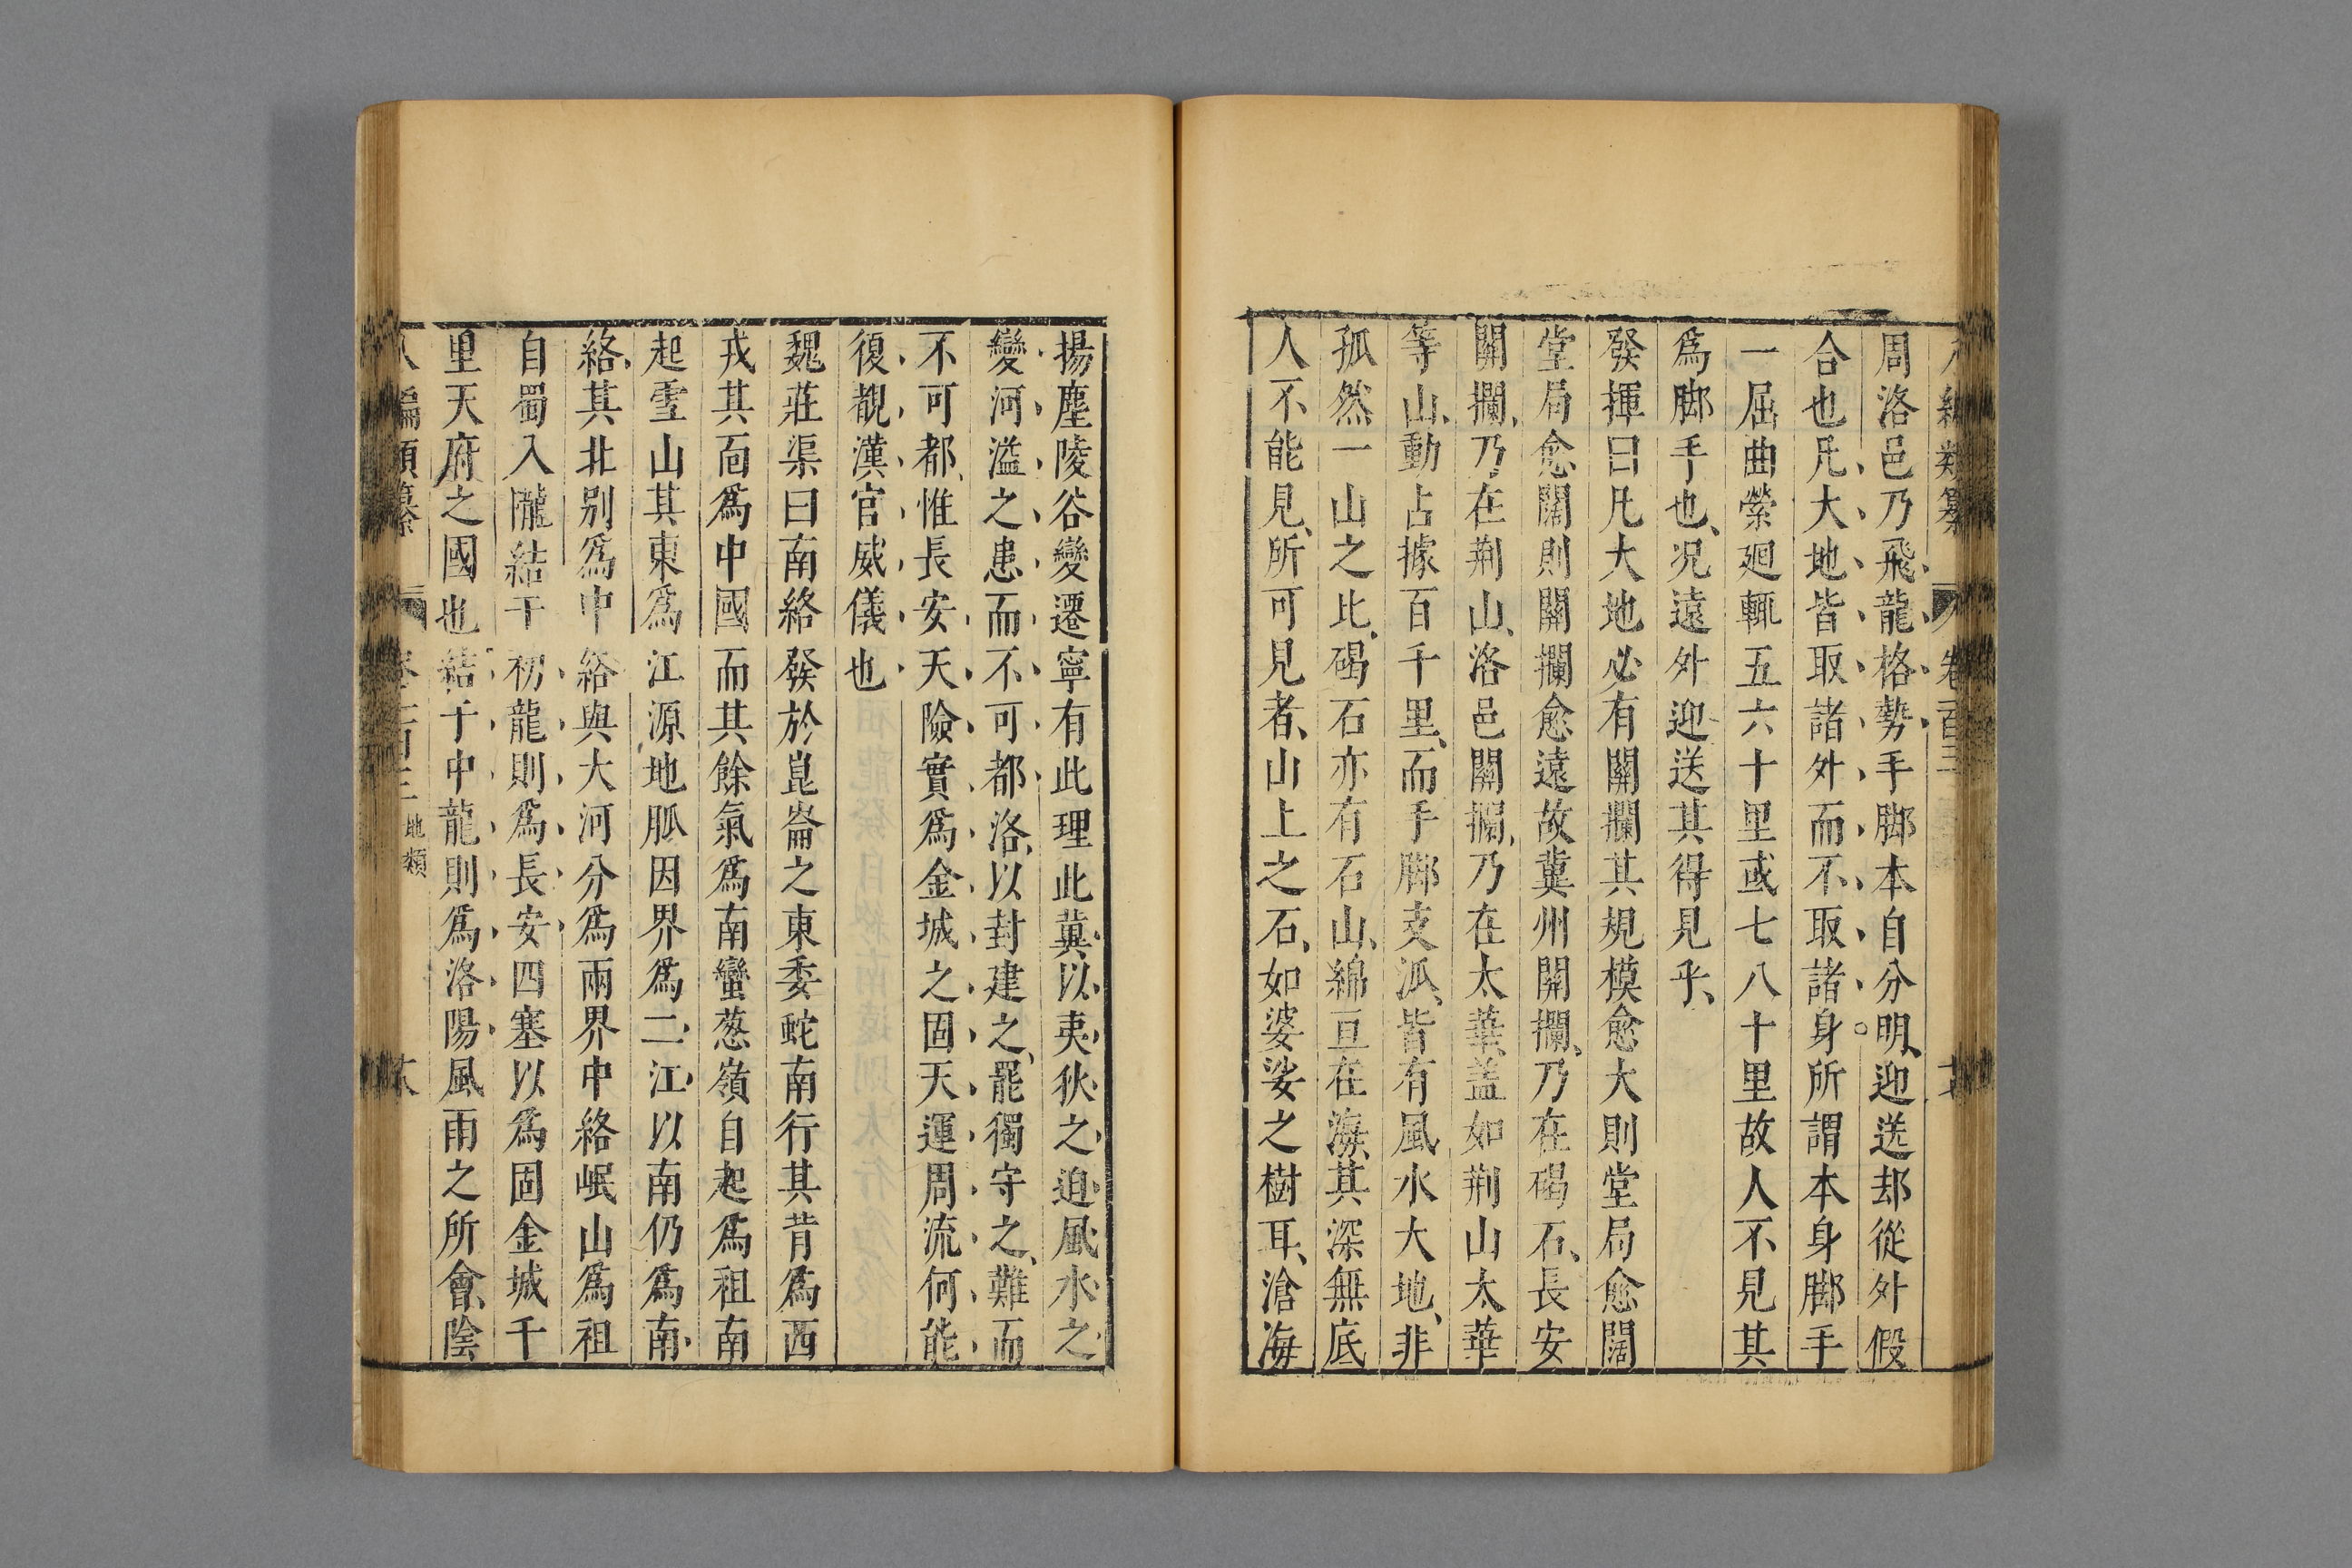 八編類纂 卷百三
周洛邑乃飛龍格勢手脚本自分明迎送却從外假
合也凡大地皆取諸外而不取諸身所謂本身脚手
一屈曲縈廻輒五六十里或七八十里故人不見其
爲脚手也況遠外迎送其得見乎
發揮曰凡大地必有關攔其規模愈大則堂局愈闊
堂局愈闊則關攔愈遠故冀州關攔乃在碣石長安
關攔乃在荆山洛邑關攔乃在太華葢如荆山太華
等山動占據百千里而手脚支派皆有風水大地非
孤然一山之比碣石亦有石山綿亘在海其深無底
人不能見所可見者山上之石如婆娑之樹耳滄海
揚塵陵谷變遷寧有此理此冀以夷狄之迫風水之
變河溢之患而不可都洛以封建之罷獨守之難而
不可都惟長安天險實爲金城之固天運周流何能
復覩漢官威儀也
魏莊渠曰南絡發於崑崙之東委蛇南行其背爲西
戎其面爲中國而其餘氣爲南蠻葱嶺自起爲祖南
起雪山其東爲江源地脈因界爲二江以南仍爲南
絡其北别爲中絡與大河分爲兩界中絡岷山爲祖
自蜀入隴結干初龍則爲長安四塞以爲固金城千
里天府之國也結于中龍則爲洛陽風雨之所會陰
八編類纂 卷一百三 地類